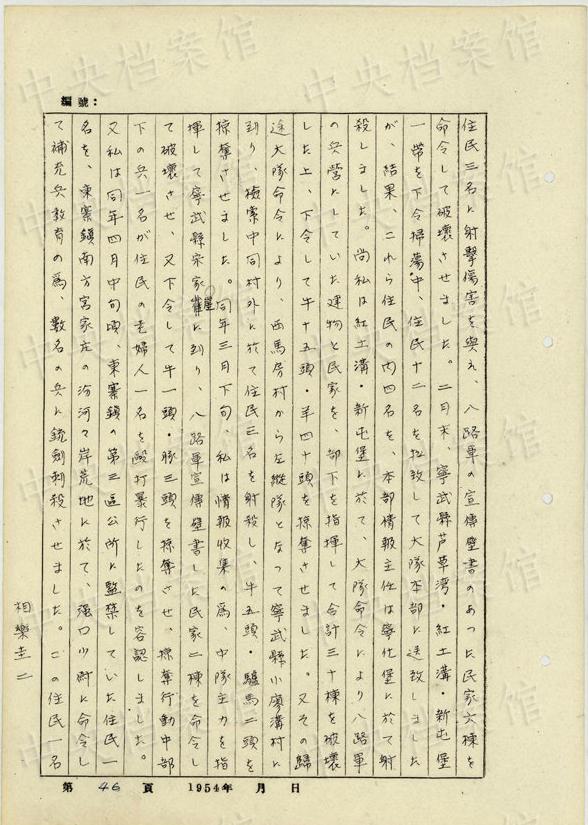 編號：
住民三名に射撃傷害を與え、八路軍の宣傳壁書のあつた民家六棟を
命令して破壊させました。二月末、寧武縣芦草湾・紅土溝・新屯堡
一帯を下令掃蕩中、住民十二名を拉致して大隊本部に送致しました
が、結果、これら住民の内四名を、本部情報主任は寧化堡に於て射
殺しました。尚私は紅土溝・新屯堡に於て、大隊命令により八路軍
の兵営にしていた建物と民家を、部下を指揮して合計三十棟を破壊
した上、下令して牛十五頭・羊四十頭を掠奪させました。又その歸
途大隊命令により、西馬房村から左縦隊となつて寧武縣小廖溝村に
到り、検索中同村外に於て住民三名を射殺し、牛五頭・騾馬二頭を
掠奪させました。同年三月下旬、私は情報收集の為、中隊主力を指
揮して寧武縣宋家崖に到り、八路軍宣傳壁書した民家二棟を命令し
て破壊させ、又下令して牛一頭・豚三頭を掠奪させ、掠奪行動中部
下の兵一名が住民の老婦人一名を殴打暴行したのを容認しました。
又私は同年四月中旬頃、東寨鎮の第三區公所に監禁していた住民一
名を、東寨鎮南方宮家庄の汾河々岸荒地に於て、堀口少尉に命令し
て補充兵教育の為、數名の兵に銃劍刺殺させました。この住民一名
相樂圭二
第 46 頁 1954年 月 日
中央档案馆